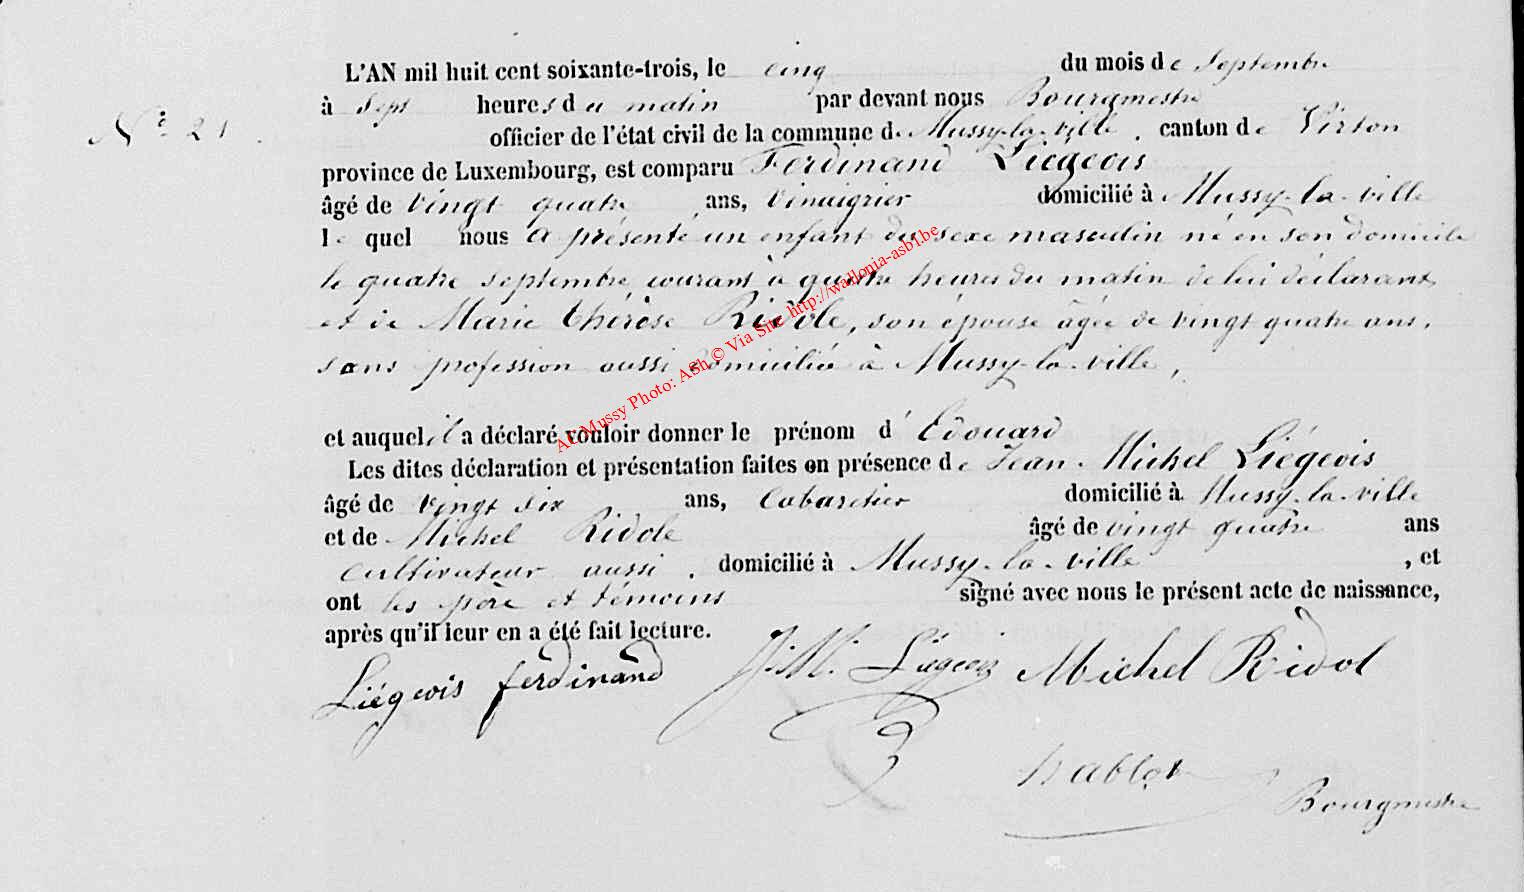 L'AN mil huit cent soixante-trois, le cinq du mois de Septembre
à Sept heures du matin par devant nous Bourgmestre
N° 21.
officier de l'état civil de la commune de Mussy-la-ville, canton de Virton
province de Luxembourg, est comparu Ferdinand Liégeois
âgé de vingt quatre ans, vinaigrier domicilié à Mussy-la-ville
le quel nous a présenté un enfant du sexe masculin né en son domicile
le quatre septembre courant à quatre heures du matin de lui déclarant
et de Marie thérèse Ridole, son épouse âgée de vingt quatre ans,
sans profession aussi domiciliée à Mussy-la-ville,
et auquel il a déclaré vouloir donner le prénom d'Edouard
Les dites déclaration et présentation faites en présence de Jean-Michel Liégeois
âgé de vingt six ans, Cabaretier domicilié à Mussy-la-ville
et de Michel Ridole âgé de vingt quatre ans
cultivateur aussi, domicilié à Mussy-la-ville, et
ont les père et témoins signé avec nous le présent acte de naissance,
après qu'il leur en a été fait lecture.
Liégeois ferdinand J. M. Liégeois Michel Ridol
hablot
Bourgmestre
AC Mussy Photo: ASh © Via Site http://wallonia-asbl.be